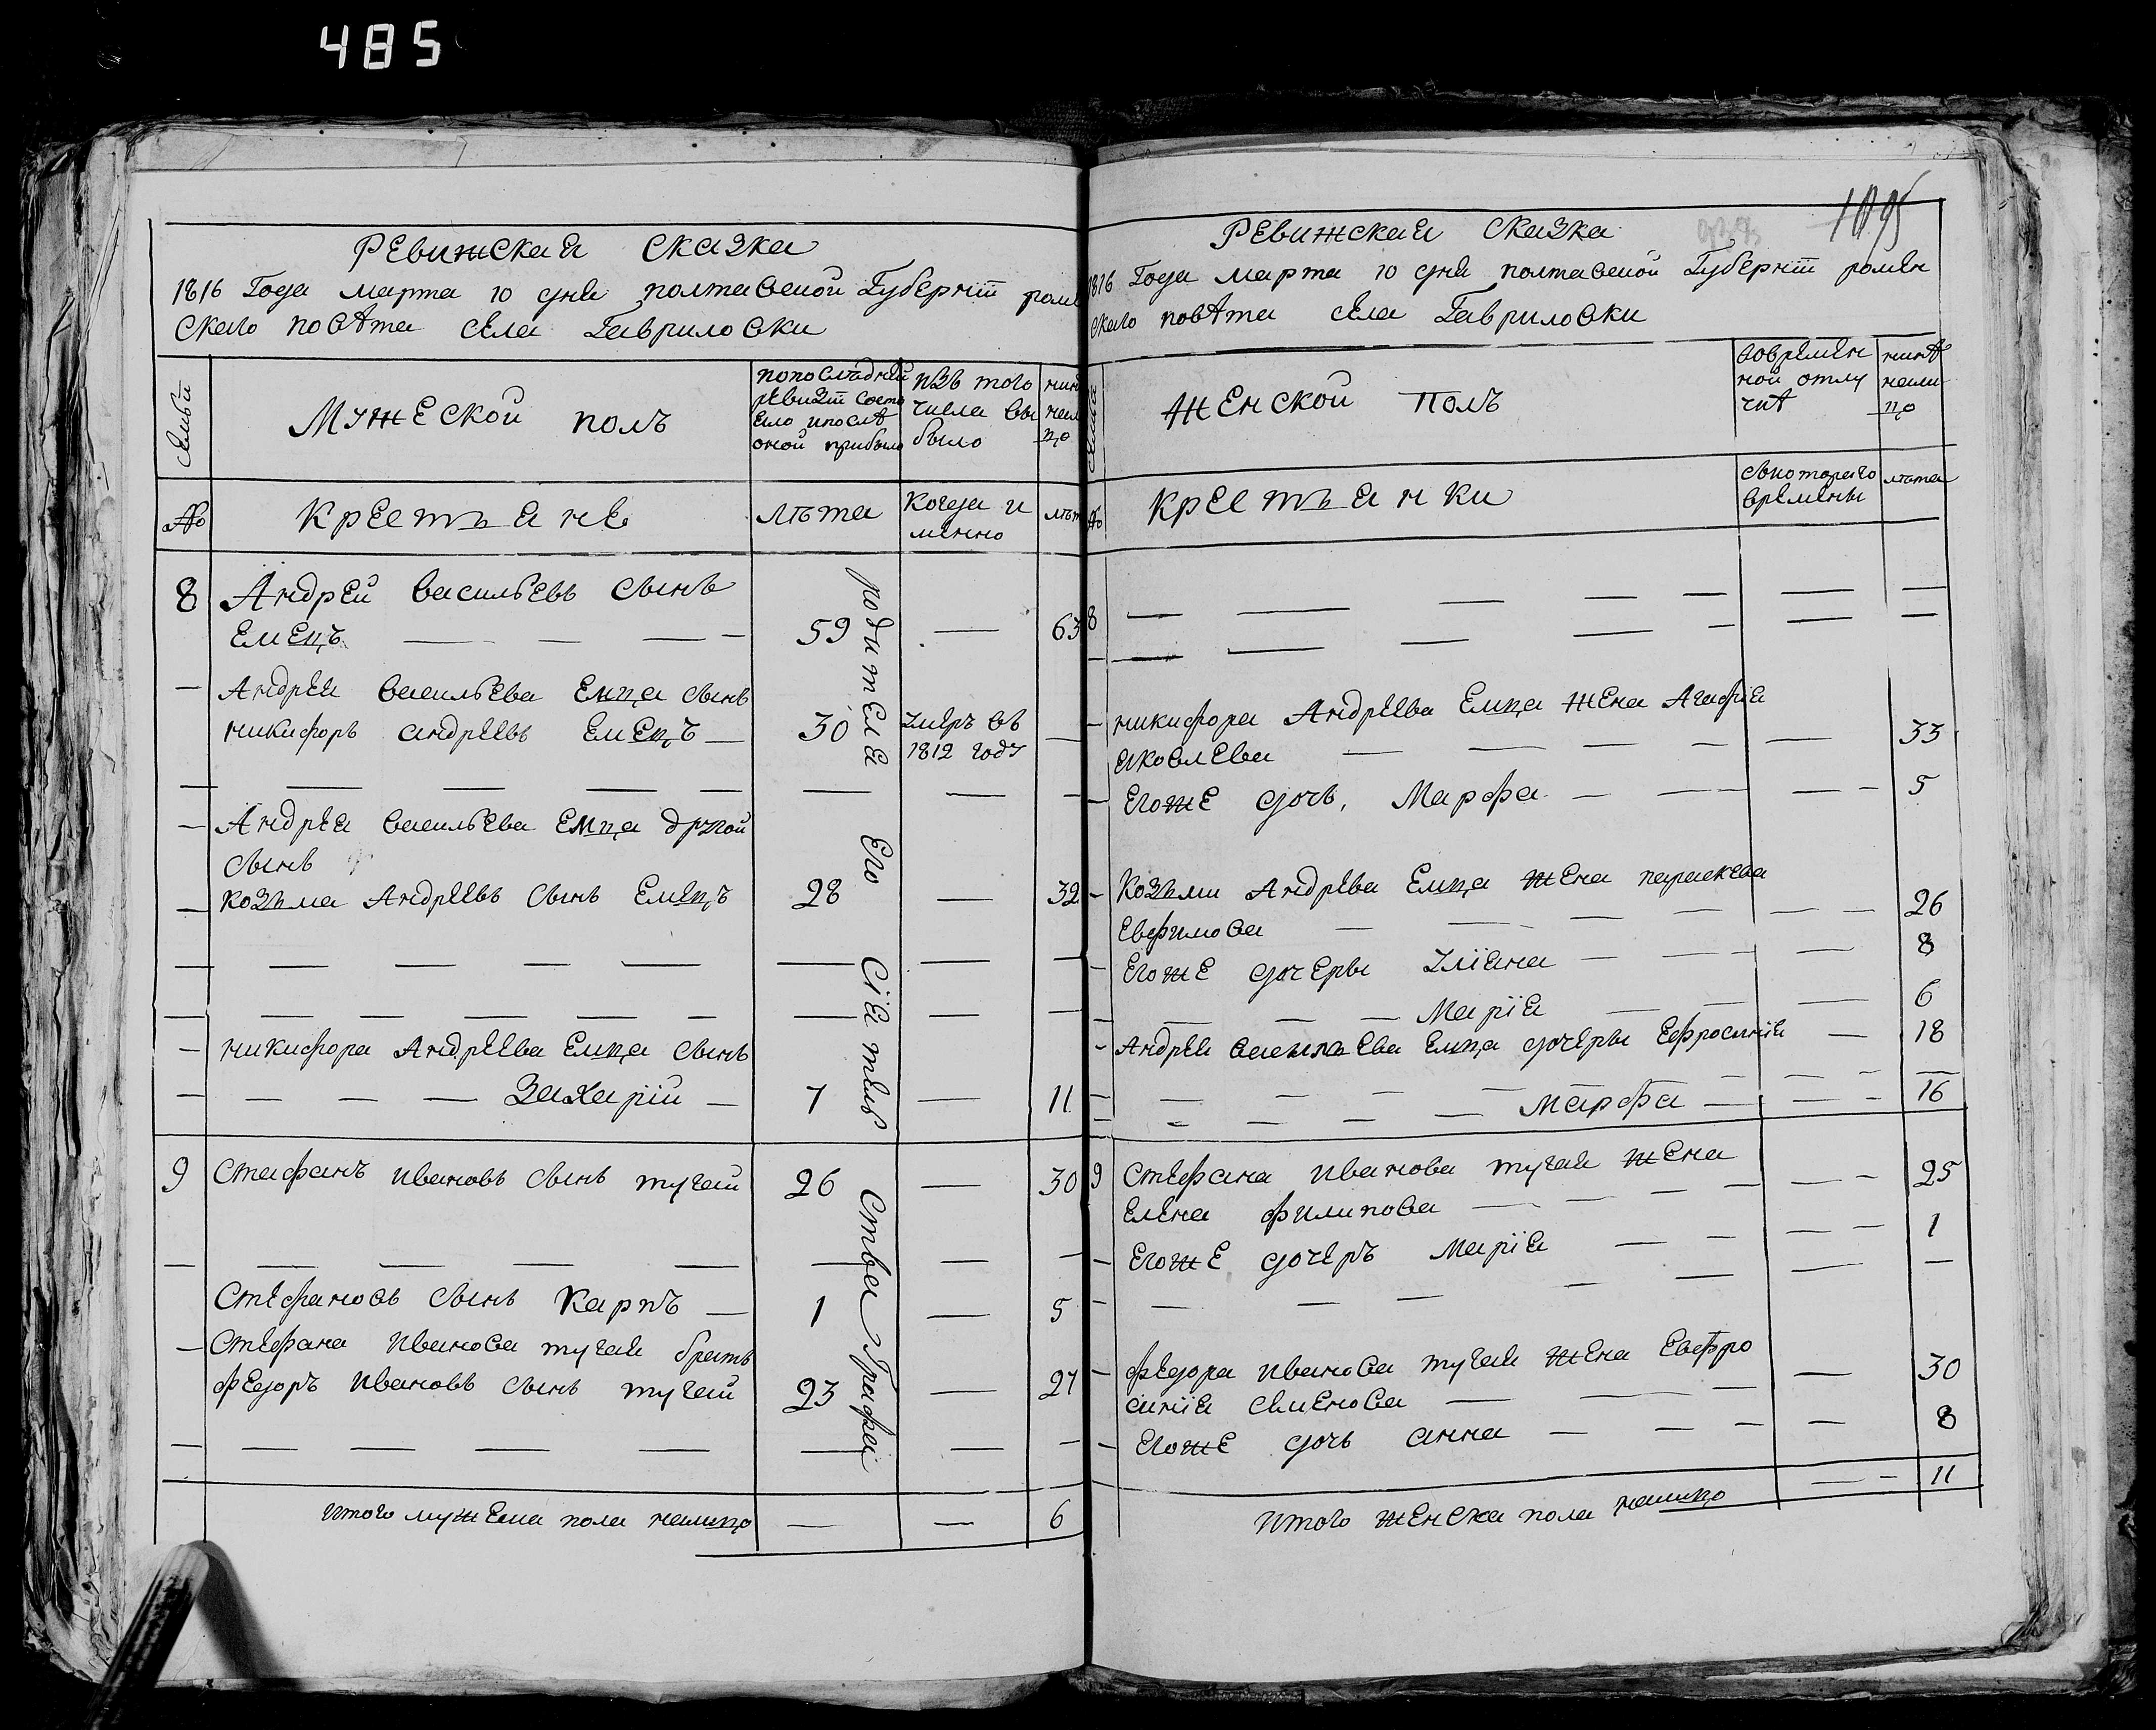 485
Ревижская сказка
1816 Года марта 10 дня полтавской Губернїи роме
ского повѣта села Гавриловки
Семьи
Мужеской полъ
попоследней
ревизїи состо
яло ипослѣ
оной прибыло
изъ того
числа вы
было
нин
нали
цо
№
Крестьяне
лѣта
Когда и
менно
лѣт
8 Андрей васильевъ сынъ
Емецъ 59 63
Андрея васильева Емца сынъ
никифоръ андреевъ Емецъ 30 умеръ въ
1812 году
Андрея васильева Емца другой
сынъ
козьма Андреевъ сынъ Емецъ 28 32
никифора Андреева Емца сынъ
Захарїй 7 11
9 Стефанъ ивановъ сынъ тугай 26 30
Стефановъ сынъ Карпъ 1 5
Стефана иванова тугая братъ
Федоръ ивановъ сынъ тугай 23 27
итого мужеска пола налицо 6
родителя Его Сїятельства Графа
1095
Ревижская Сказка
1816 Года марта 10 дня полтавской Губернїи ромен
ского повѣта села Гавриловки
Семьи
Женской Полъ
вовремен
ной отлу
чкѣ
нинѣ
нали
цо
№
крестьянки
скотораго
времены
лѣта
8
никифора Андреева Емца жена Агафїя
яковлева 33
Егоже дочь, Марфа 5
Козьми Андрева Емца жена параскева
Евфимова 26
Егоже дочеры Улїяна 8
Марїя 6
Андрея васильева Емца дочеры Ефросинїя 18
Марфа 16
9 Стефана иванова тугая жена
Елена филипова 25
Егоже дочеръ Марїя 1
федора иванова тугая жена Евфро
синїя семенова 30
Егоже дочь анна 8
Итого женска пола налицо 11